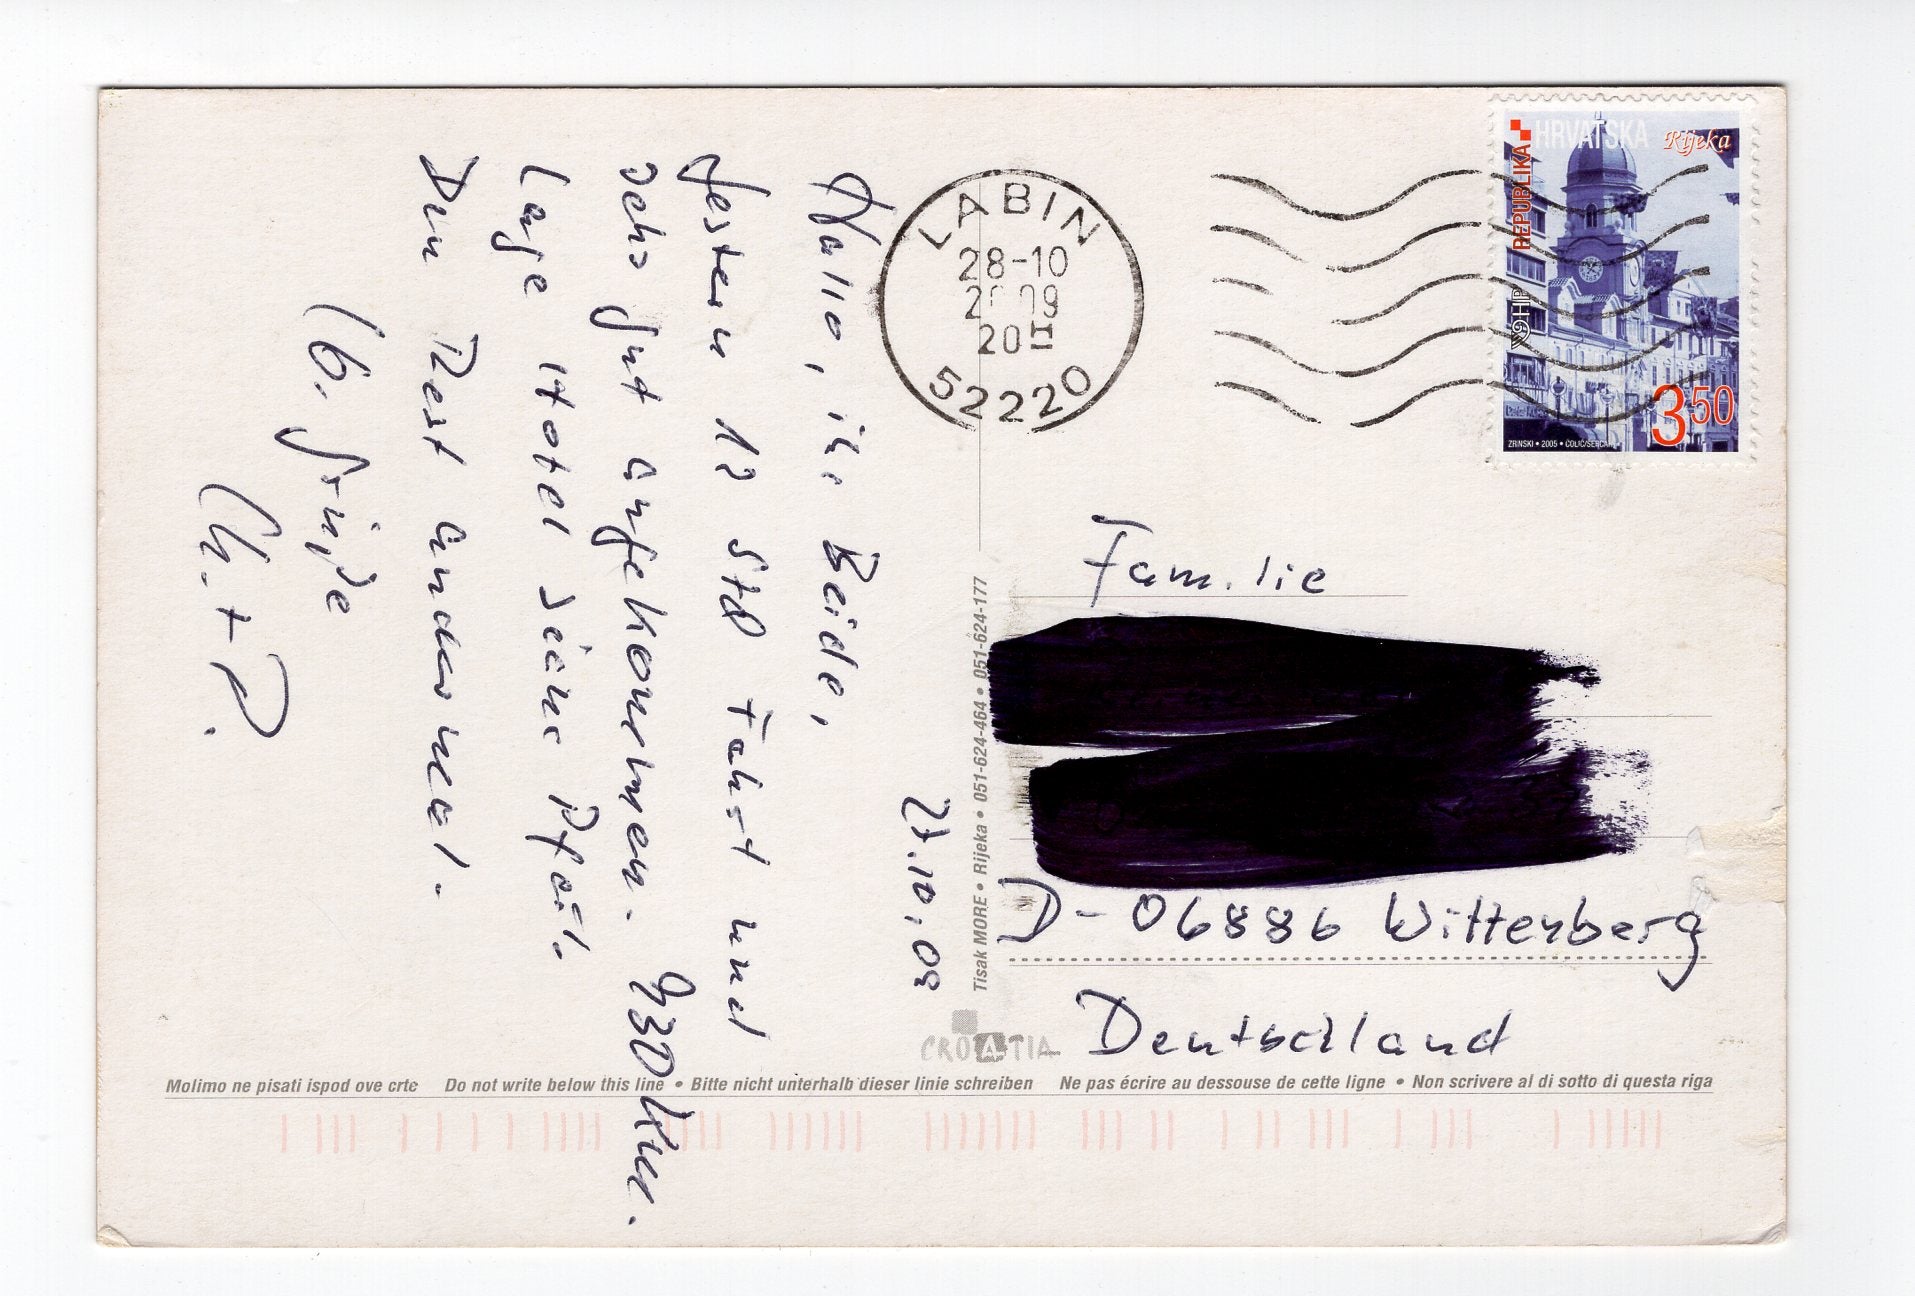 27.10.09
Hallo, ihr Beide,
gestern 12 Std Fahrt und
sehr gut angekommen. 930 Km.
Lage Hotel
Den Rest andermal.
lb. Grüße
Ch. + P.
LABIN
28-10
09
20
52220
REPUBLIKA HRVATSKA
Rijeka
HP
3 50
ZRINSKI • 2005 •
Familie
D-06886 Wittenberg
Deutschland
Tisak MORE • Rijeka • 051-624-464 • 051-624-177
CROATIA
Molimo ne pisati ispod ove crte Do not write below this line • Bitte nicht unterhalb dieser linie schreiben Ne pas écrire au dessouse de cette ligne • Non scrivere al di sotto di questa riga